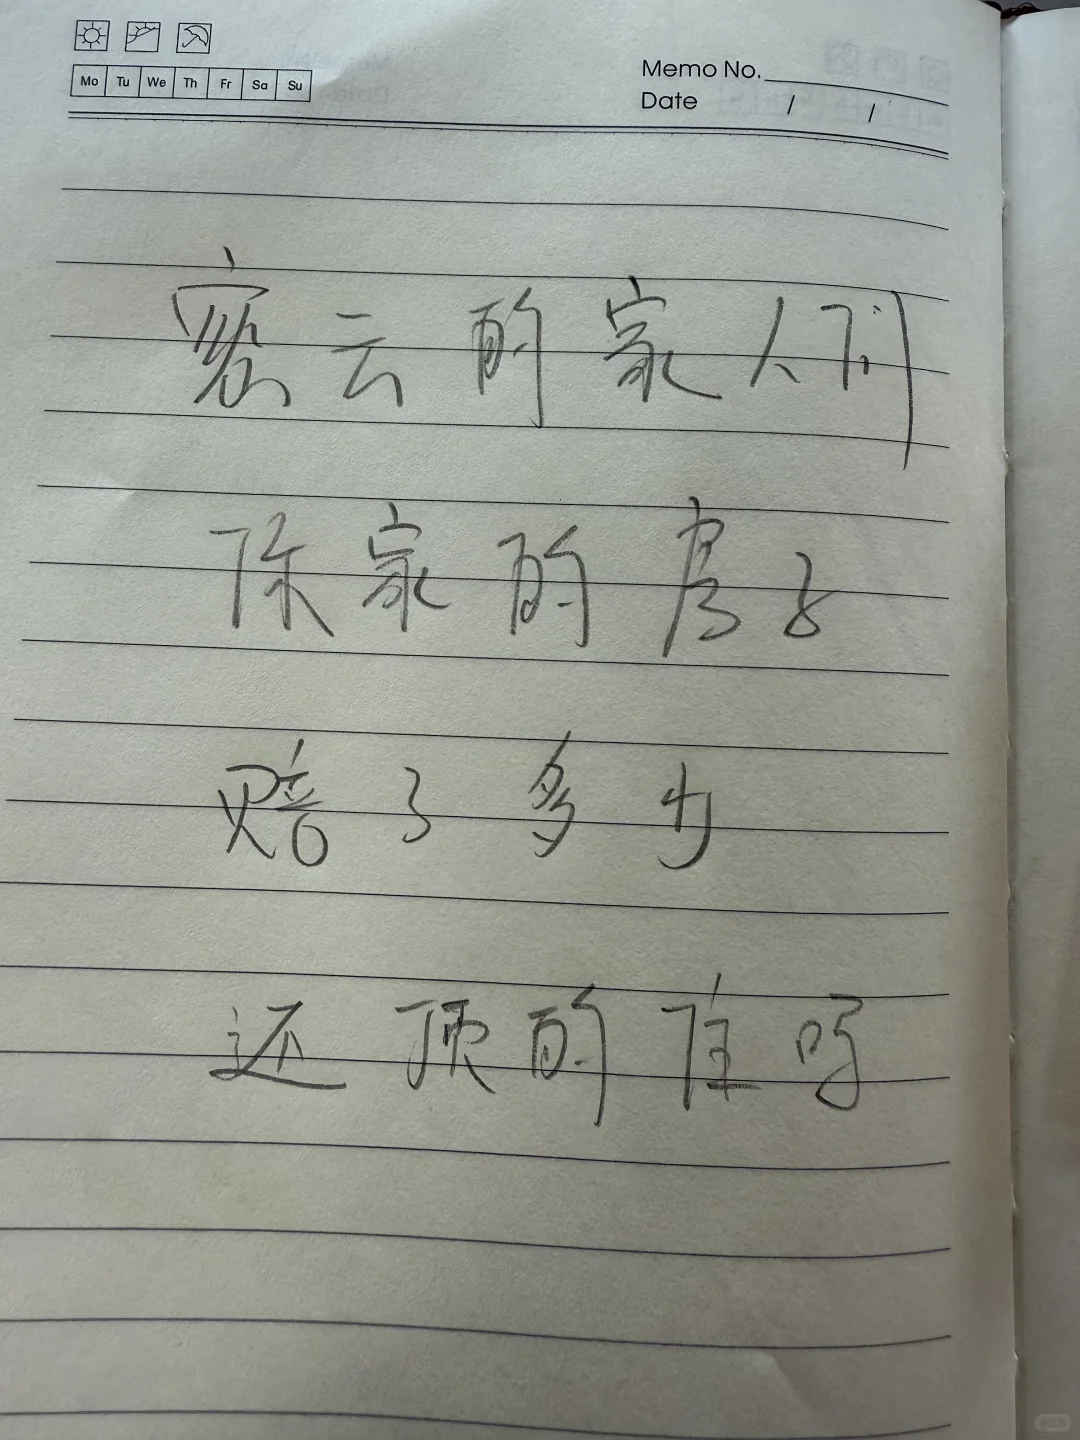 Mo Tu We Th Fr Sa Su
Memo No.
Date / /
密云的家人们
你家的房子
赔了多少
还顶的住吗
小红书